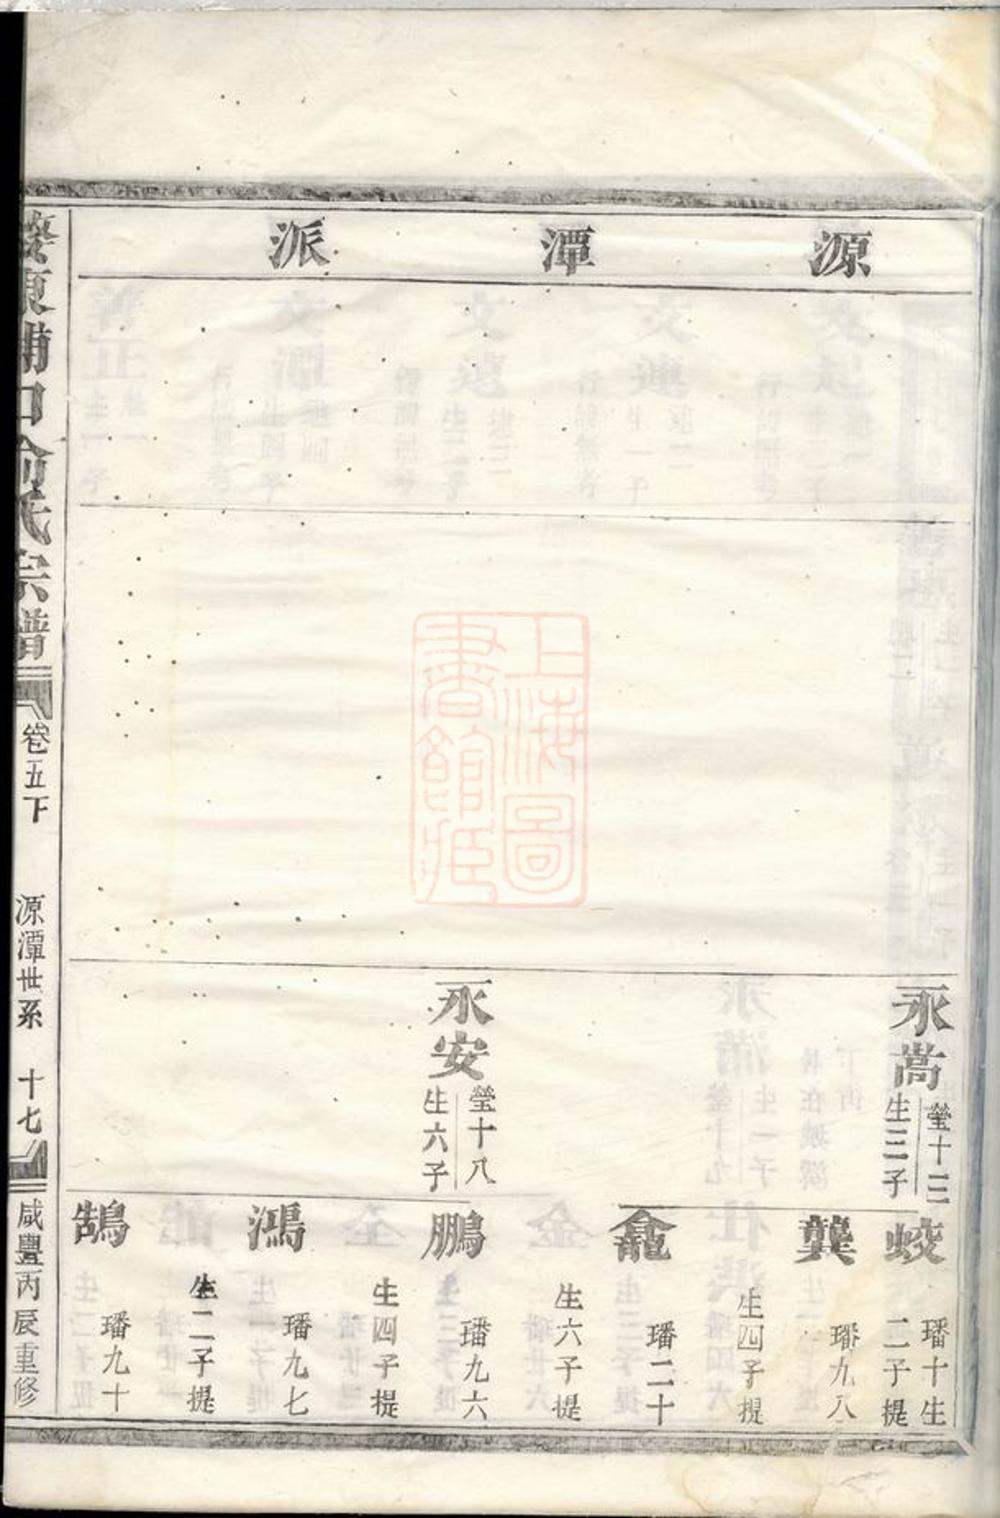 源潭派
永嵩
瑩十三
生三子
永安
瑩十八
生六子
蛟
璠十生
二子提
龔
璠九八
生四子提
龕
璠二十
生六子提
鵬
璠九六
生四子提
鴻
璠九七
生二子提
鵠
璠九十
婺東浦口俞氏宗譜
卷五下
源潭世系
十七
咸豐丙辰重修
上海圖書館藏